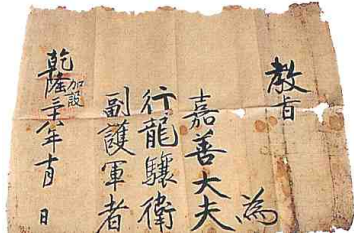 教旨
為
嘉善大夫
行龍驤衛
副護軍者
加設
乾隆二十八年 月 日